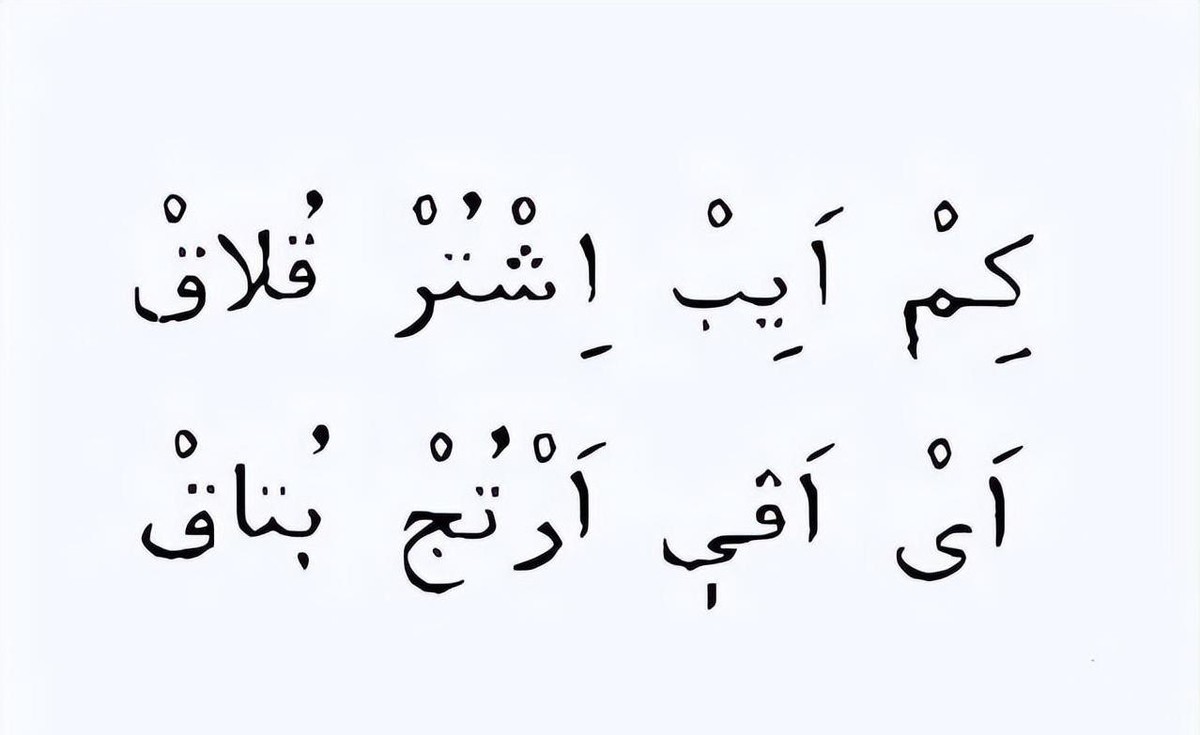 كِمْ اَيِبْ اِشْتُرْ قُلاقْ
اَىْ اَڤىٖ اَرْتُجْ بُتاقْ